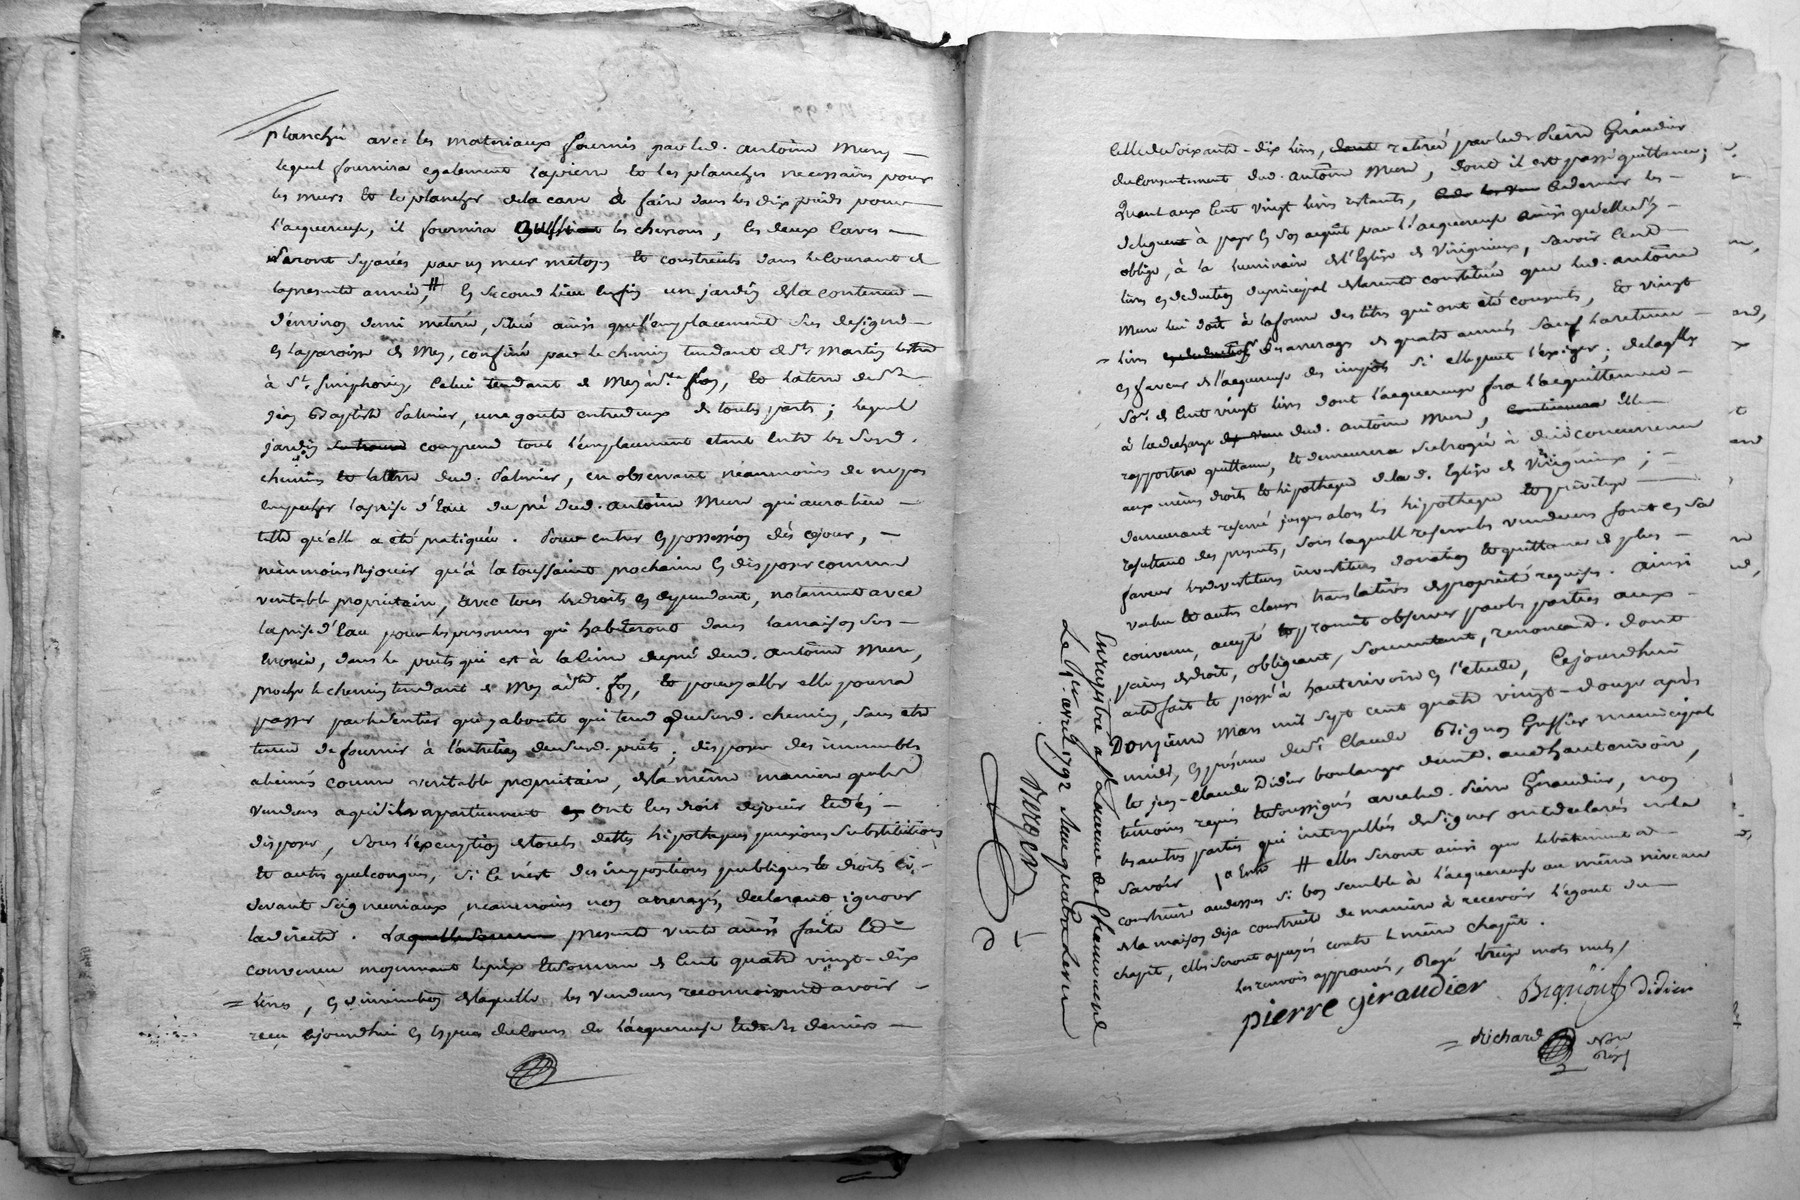 planché avec les materiaux fournis par led. antoine Mure
lequel fournira egalement lapierre et les planches necessaires pour
les murs et le plancher dela cave à faire dans les dix pieds pour
l'acquereuse, il fournira aussi les chevrons, les deux caves
seront separées par un mur mitoyen et construits dans le courant de
lapresente année, # en second lieu enfin un jardin dela contenue
d'environ demi meterée, situé ainsi que l'emplacement sus designé
en laparoisse de Meys, confiné par le chemin tendant de St. Martin lestra
à St. simphorien, celui tendant de Meys à ste foy, et laterre de Sr
jean Baptiste dalmier, une goute entredeux de toutes parts; lequel
jardin comprend tout l'emplacement etant entre les susd.
chemins et laterre dud. dalmier, en observant neanmoins de ne pas
empecher laprise d'eau du pré dud. antoine Mure qui aura lieu
telle qu'elle a été pratiquée. Pour entrer en possession dès cejour,
neanmoins n'en jouir qu'à la toussaint prochaine en disposer comme
veritable proprietaire, avec tous les droits en dependant, notamment avec
laprise d'eau pour les personnes qui habiteront dans la maison sus
enoncée, dans le puits qui est à la cime dupré dud. antoine Mure,
proche le chemin tendant de Meys à ste. foy, et pour y aller elle pourra
passer par le sentier qui y aboutit qui tend dudusd. chemin, sans etre
tenue de fournir à l'entretien dudusd. puits; disposer des immeubles
alienés comme veritable proprietaire, dela même maniere que les
vendeurs a qui ils appartiennent ont eu droit dejouir et d'en
disposer, sous l'exemption de toutes dettes hipotheques pensions substitutions
et autres quelconques, si ce n'est des impositions publiques et droits ci-
devant seigneuriaux, neanmoins non arreragés, declarant ignorer
ladirecte. laquelle presente vente ainsi faite et
convenue moyennant le prix et somme de cent quatre vingt-dix
livres, en diminution de laquelle les vendeurs reconnoissent avoir
recu cejourdhui en especes du cours de l'acquereuse et de ses deniers
celle de soixante-dix livres, retirée par led. Pierre Giraudier
du consentement dud. antoine Mure, dont il est passé quittance;
Quant aux cent vingt livres restants, ce dernier les
delegue à payer en son acquit par l'acquereuse ainsi qu'elle s'y
oblige, à la luminaire de l'Eglise de Virigneux, savoir cent
livres en deduction du principal de larente constituée que led. antoine
Mure lui doit à laforme des titres qui ont été consentis, et vingt
livres d'arrerages de quatre années sauf laretenue
en faveur de l'acquereuse des impots si elle peut l'exiger; de laqlle
Sor. de cent vingt livres dont l'acquereuse fera l'acquittement
à la decharge dud. antoine Mure, elle
rapportera quittance, et demeurera subrogée à due concurrence
aux mêmes droits et hipotheque de lad. Eglise de Virigneux;
demeurant reservé jusques alors les hipotheque et privilege
resultant des presentes, sous laquelle reserve les vendeurs font en sa
faveur les devestitures investitures donation et quittance de plus
value et autres clauses translatives de propriété requises. ainsi
convenu, accepté et promis observer par les parties aux
peines de droit, obligeant, soumettant, renoncant. dont
acte fait et passé à hauterivoire en l'etude, cejourdhui
Donzieme Mars mil sept cent quatre vingt-douze après
midi, en présence du Sr. Claude Bignon Greffier municipal
et jean-Claude Didier boulanger demt. aud. hauterivoire,
témoins requis et soussignés avec led. Pierre Giraudier, non
les autres parties qui interpellées designer ont declaré ne le
savoir. 1er envoi # elles seront ainsi que le bâtiment à
construire audessus si bon semble à l'acquereuse au même niveau
de la maison deja construite de maniere à recevoir l'égout du
chapit, elles seront apuyées contre le même chapit.
les renvois approuvés, rayé treize mots nuls/
pierre giraudier Bignon Didier
Richard
Enregistré a St. Laurent de Chamousset
Le avril 1792
Verger